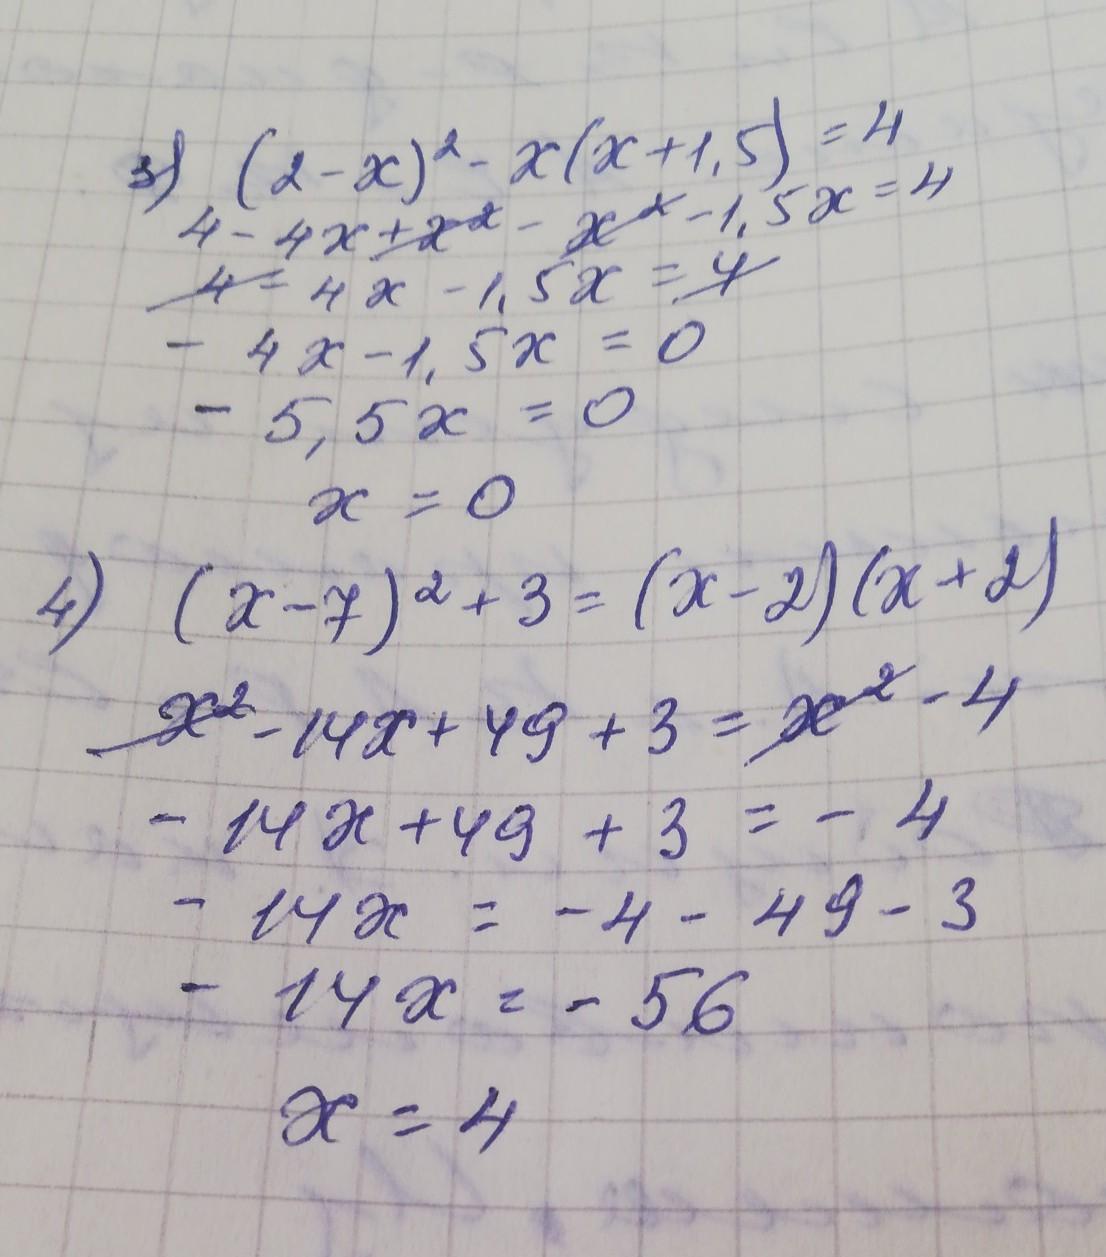 3) (2-x)² - x(x+1,5) = 4
4 - 4x + x² - x² - 1,5x = 4
4 - 4x - 1,5x = 4
- 4x - 1,5x = 0
- 5,5x = 0
x = 0
4) (x-7)² + 3 = (x-2)(x+2)
x² - 14x + 49 + 3 = x² - 4
- 14x + 49 + 3 = - 4
- 14x = -4 - 49 - 3
- 14x = - 56
x = 4